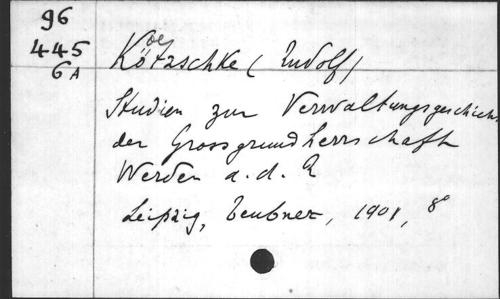 96
445
6A
Kötzschke (Rudolf)
oe
Studien zur Verwaltungsgeschich.
der Grossgrundherrschaft
Werden a. d. R
Leipzig, Teubner, 1901, 8°